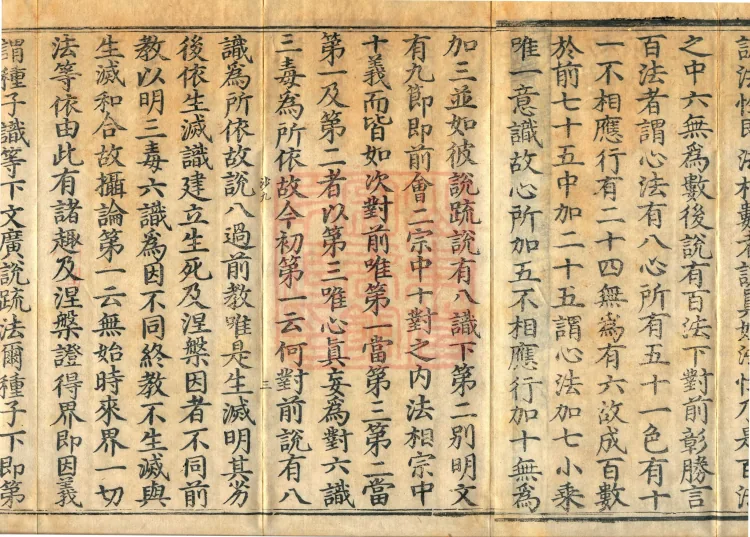 之中六無爲數後說有百法下對前彰勝言
百法者謂心法有八心所有五十一色有十
一不相應行有二十四無爲有六故成百數
於前七十五中加二十五謂心法加七小乘
唯一意識故心所加五不相應行加十無爲
加三並如彼說疏說有八識下第二別明文
有九節即前會二宗中十對之內法相宗中
十義而皆如次對前唯第一當第三第二當
第一及第二者以第三唯心眞妄爲對六識
三毒爲所依故今初第一云何對前說有八
三
識爲所依故說八過前教唯是生滅明其劣
後依生滅識建立生死及涅槃因者不同前
教以明三毒六識爲因不同終教不生滅與
生滅和合故攝論第一云無始時來界一切
法等依由此有諸趣及涅槃證得界即因義
謂種子識等下文廣說疏法爾種子下即第